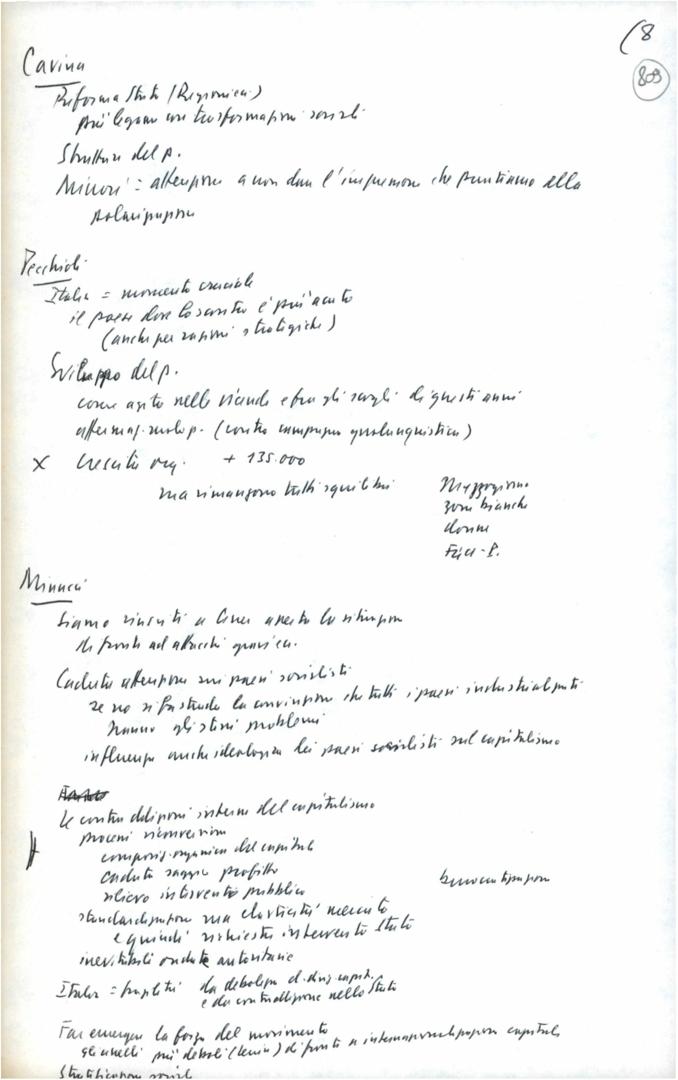 (8
809
Cavina
Riforma Stato (Regioni ecc.)
più legami con trasformazioni sociali
Struttura del p.
Minori = attenzione a non dare l'impressione che puntiamo alla
polarizzazione
Pecchioli
Italia = momento cruciale
il paese dove lo scontro è più acuto
(anche per ragioni strategiche)
Sviluppo del p.
come agito nelle vicende e fra gli scogli di questi anni
afferma ruolo p. (contro campagna qualunquistica)
x Crescita org. + 135.000
ma rimangono tutti squilibri
Mezzogiorno
zone bianche
donne
Minucci
Siamo riusciti a tener aperta la situazione
di fronte ad attacchi gravi ecc.
Caduta attenzione sui paesi socialisti
se no si fa strada la convinzione che tutti i paesi industrializzati
hanno gli stessi problemi
influenza anche ideologica dei paesi socialisti sul capitalismo
Le contraddizioni interne del capitalismo
processi riconversione
composiz. organica del capitale
caduta saggio profitto
rilievo intervento pubblico
burocratizzazione
standardizzazione ma elasticità mercato
e quindi richiesta intervento Stato
inevitabili ondate autoritarie
Italia = fragilità da debolezza capit.
e da contraddizione nello Stato
Far emergere la forza del movimento
gli anelli più deboli (Lenin) di fronte a internazionalizzazione capitale
Stratificazione sociale